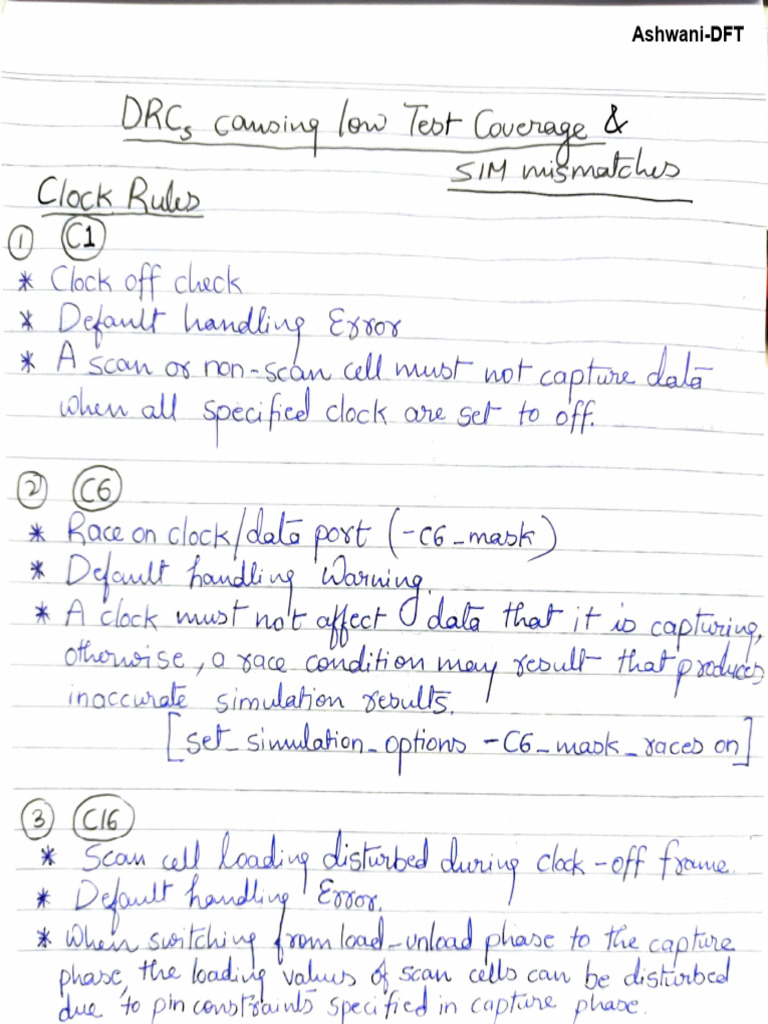 Ashwani-DFT
DRCs causing low Test Coverage &
SIM mismatches
Clock Rules
① C1
* Clock off check
* Default handling Error
* A scan or non-scan cell must not capture data
when all specified clock are set to off.
② C6
* Race on clock/data port (-C6_mask)
* Default handling Warning.
* A clock must not affect data that it is capturing,
otherwise, a race condition may result that produces
inaccurate simulation results.
[set_simulation_options -C6_mask_races on]
③ C16
* Scan cell loading disturbed during clock-off frame.
* Default handling Error.
* When switching from load_unload phase to the capture
phase, the loading values of scan cells can be disturbed
due to pin constraints specified in capture phase.